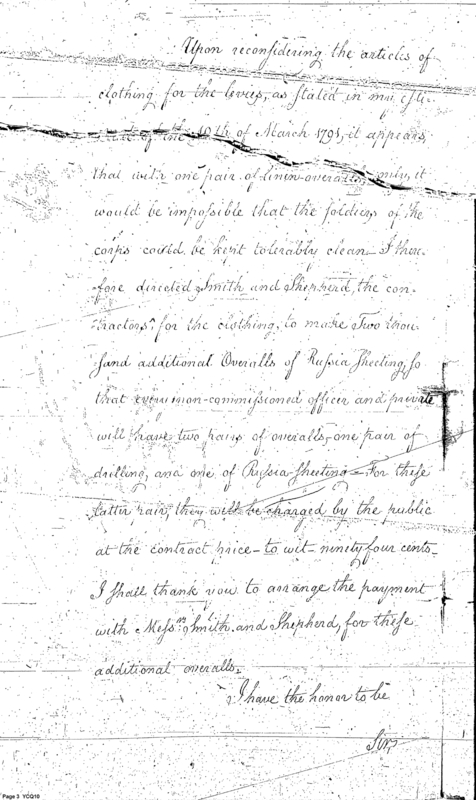 Upon reconsidering the articles of
clothing for the levies, as stated in my esti-
of the 10th of March 1791, it appears
that with one pair of linen overalls only, it
would be impossible that the soldiers of the
corps could be kept tolerably clean – I there-
fore directed Smith and Shepherd, the con-
tractors, for the clothing, to make Two thou-
sand additional Overalls of Russia Sheeting, so
that every non-commissioned officer and private
will have two pairs of overalls, one pair of
drilling, and one of Russia Sheeting – For these
latter pair, they will be charged by the public
at the contract price – to wit – ninety four cents –
I shall thank you to arrange the payment
with Messrs. Smith and Shepherd, for these
additional overalls.
I have the honor to be
Sir,
Page 3 YCQ10